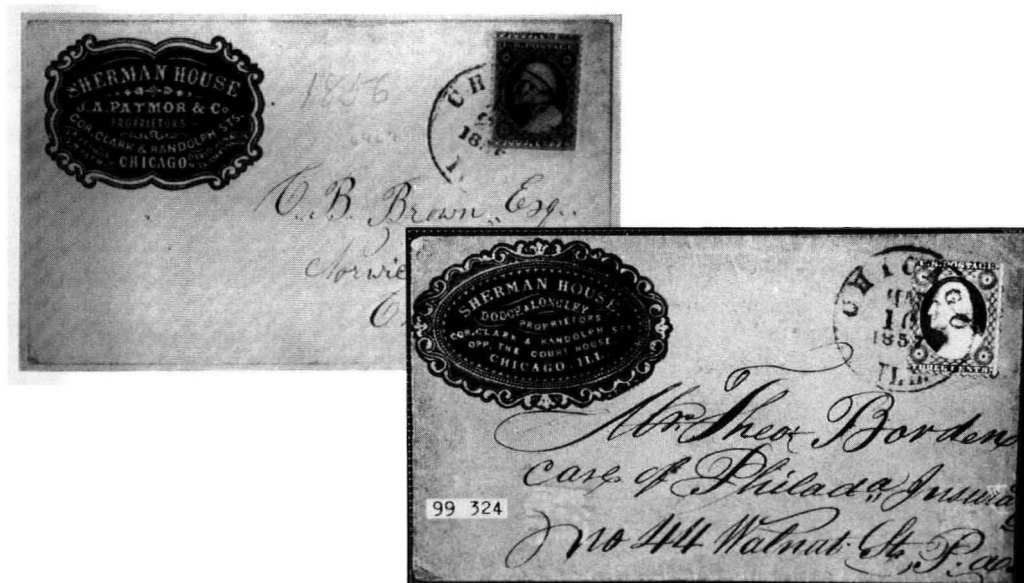 SHERMAN HOUSE
J.A. PATMOR & Co
PROPRIETORS
COR. CLARK & RANDOLPH STS.
CHICAGO
1856
CH
18
U.S. POSTAGE
C. B. Brown, Esq.
Norwic
SHERMAN HOUSE
DODGE & LONGLEY
PROPRIETORS
COR. CLARK & RANDOLPH STS
OPP. THE COURT HOUSE
CHICAGO. ILL.
CHICAGO
10
185
ILL.
POSTAGE
THREE CENTS
Mr. Theo. Borden
care of Philada Insura
no 44 Walnut St, P
99 324